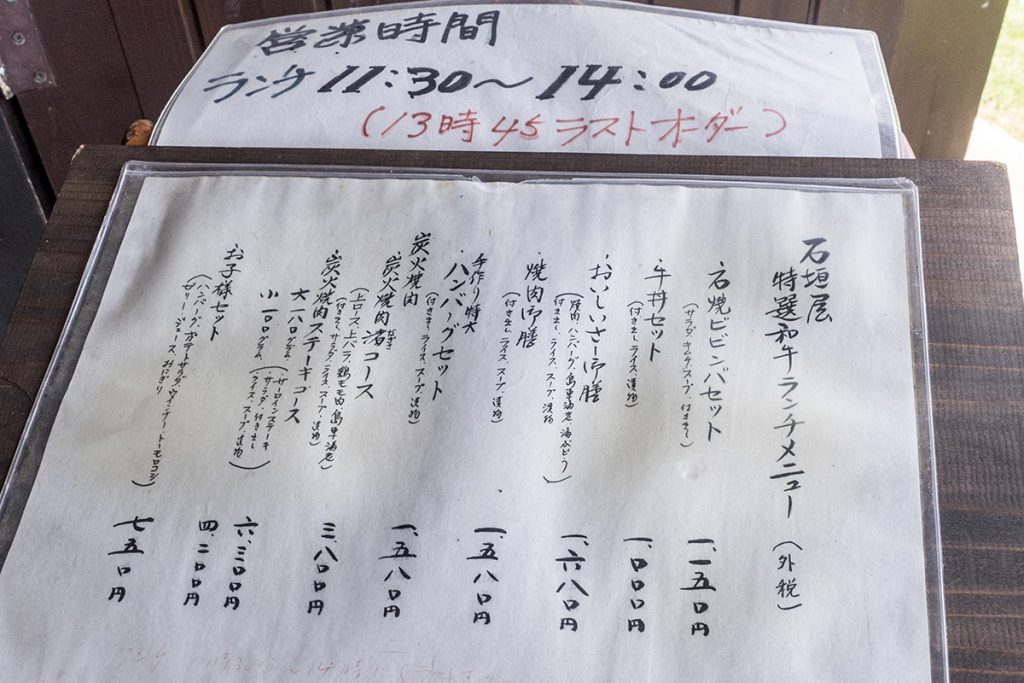 営業時間
ランチ 11:30～14:00
(13時45ラストオーダー)
石垣屋
特選和牛ランチメニュー (外税)
石焼ビビンバセット 一、一五〇円
(サラダ、キムチ、スープ、付き出し)
牛丼セット 一、〇〇〇円
(付き出し、ライス、スープ、漬物)
おいしいさー御膳 一、六八〇円
(焼肉、ハンバーグ、島車海老、海ぶどう)
付き出し、ライス、スープ、漬物
焼肉御膳 一、五八〇円
(付き出し、ライス、スープ、漬物
手作り特大
ハンバーグセット 一、五八〇円
(付き出し、ライス、スープ、漬物)
炭火焼肉
炭火焼肉 渚コース 三、八〇〇円
なぎさ
(上ロース、上バラ、鶏モモ肉、島車海老)
(付き出し、サラダ、ライス、スープ、漬物)
炭火焼肉ステーキコース
大 一八〇グラム 六、三〇〇円
小 一〇〇グラム 四、二〇〇円
(サーロインステーキ
・サラダ、付き出し
ライス、スープ、漬物)
お子様セット 七五〇円
(ハンバーグ、ポテトサラダ、ウインナー、トーモロコシ)
ゼリー、ジュース、おにぎり